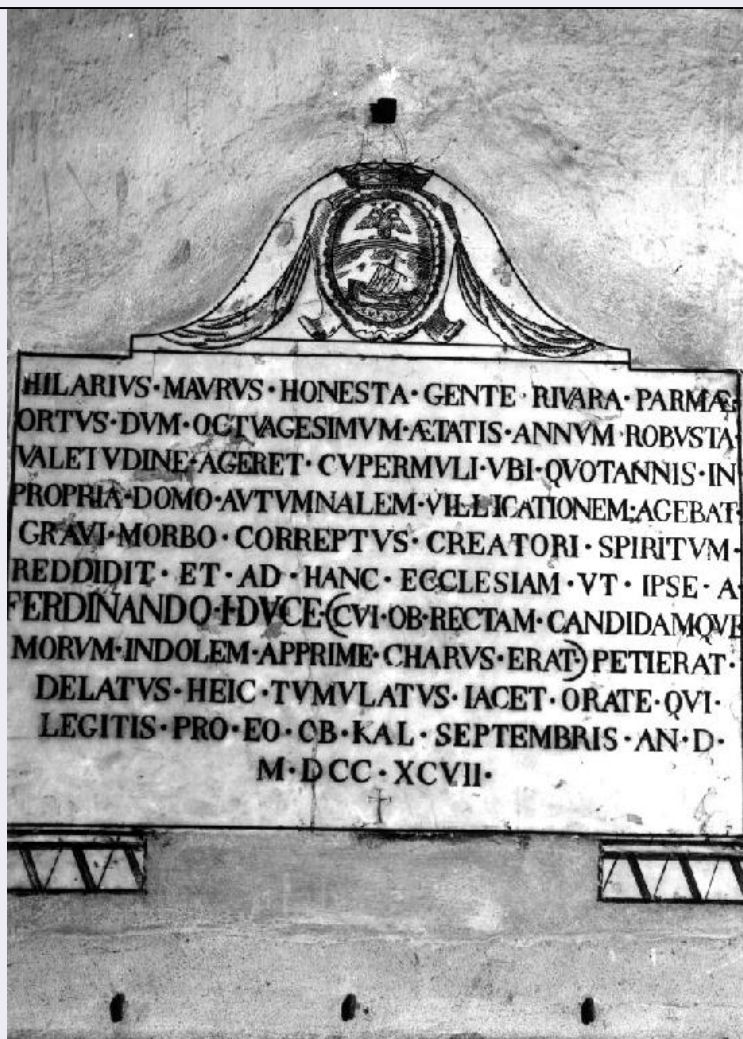 HILARIVS·MAVRVS·HONESTA·GENTE·RIVARA·PARMÆ·
ORTVS·DVM·OCTVAGESIMVM·ÆTATIS·ANNVM·ROBVSTA·
VALETVDINE·AGERET·CVPERMVLI·VBI·QVOTANNIS·IN
PROPRIA·DOMO·AVTVMNALEM·VILLICATIONEM·AGEBAT·
GRAVI·MORBO·CORREPTVS·CREATORI·SPIRITVM·
REDDIDIT·ET·AD·HANC·ECCLESIAM·VT·IPSE·A·
FERDINANDO·I·DVCE·(CVI·OB·RECTAM·CANDIDAMQVE
MORVM·INDOLEM·APPRIME·CHARVS·ERAT·)PETIERAT·
DELATVS·HEIC·TVMVLATVS·IACET·ORATE·QVI·
LEGITIS·PRO·EO·OB·KAL·SEPTEMBRIS·AN·D·
M·DCC·XCVII·